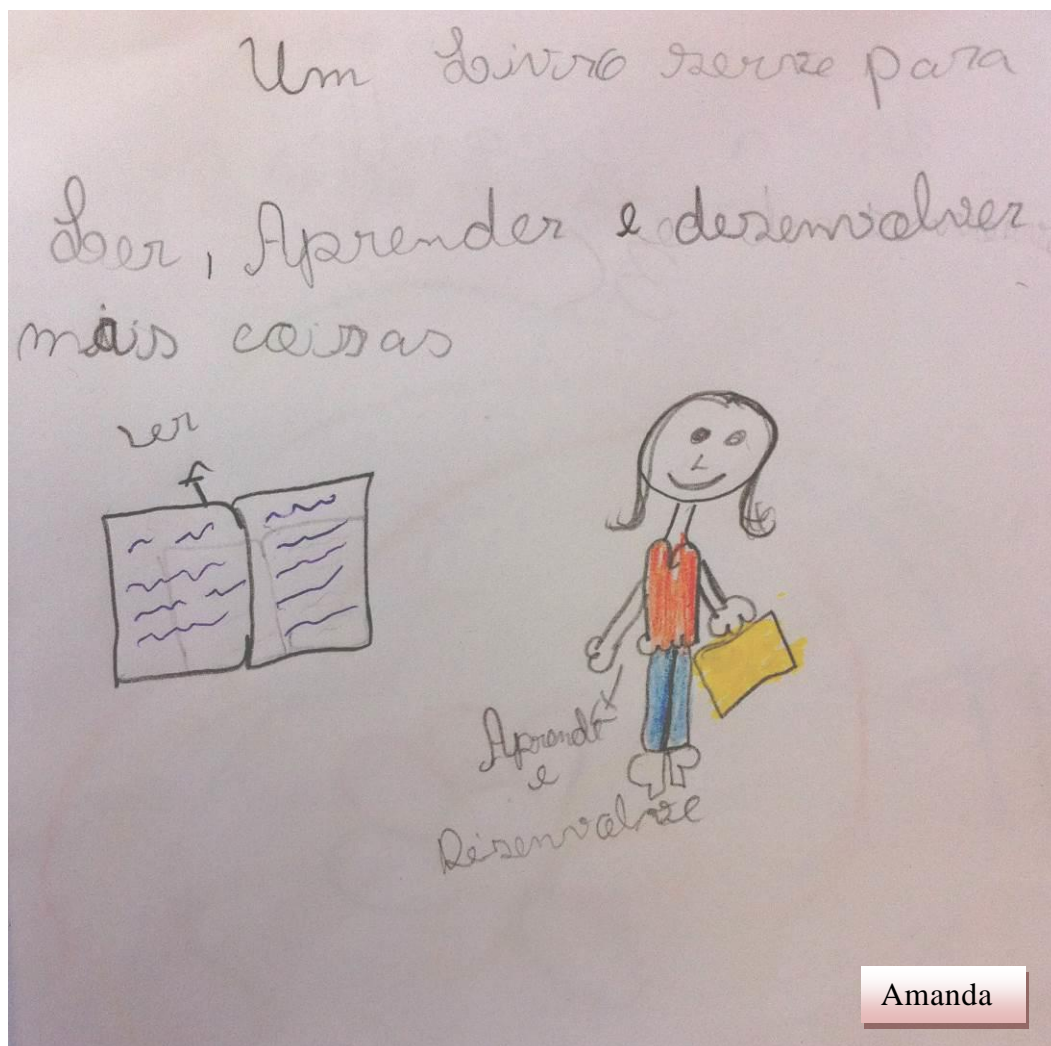 Um Livro serve para
Ler, Aprender e desenvolver
mais coisas
ler
Aprende
e
Desenvolve
Amanda